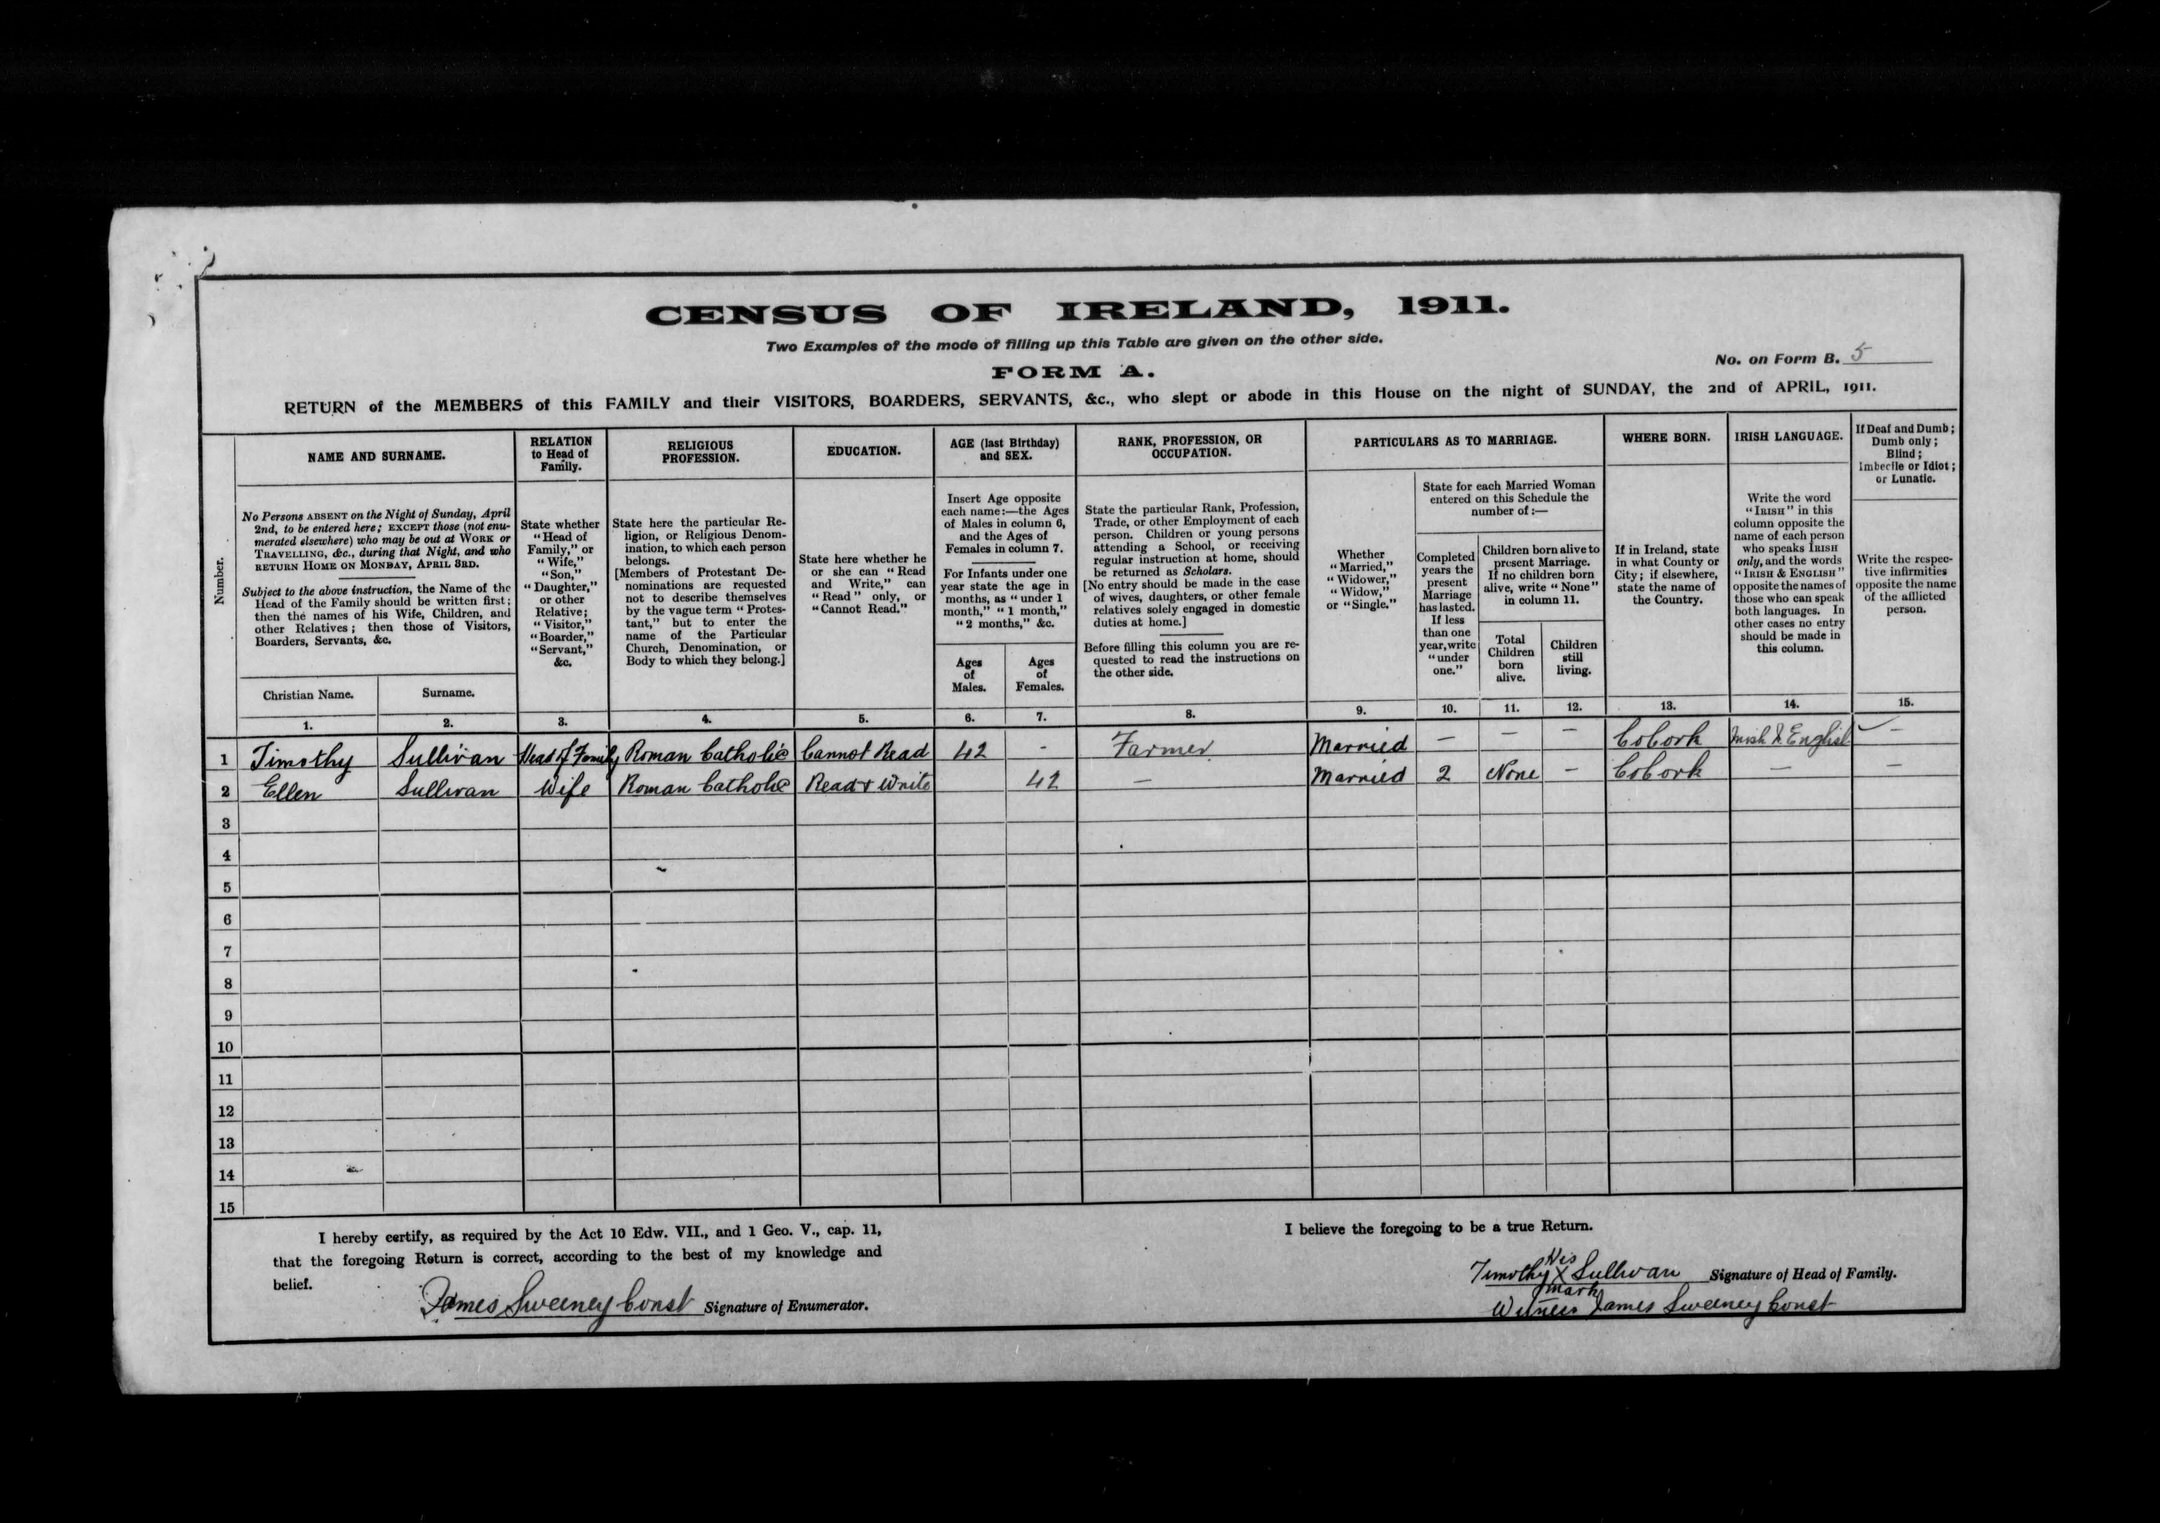 CENSUS OF IRELAND, 1911.
Two Examples of the mode of filling up this Table are given on the other side.
No. on Form B. 5
FORM A.
RETURN of the MEMBERS of this FAMILY and their VISITORS, BOARDERS, SERVANTS, &c., who slept or abode in this House on the night of SUNDAY, the 2nd of APRIL, 1911.
Number.
NAME AND SURNAME.
No Persons ABSENT on the Night of Sunday, April
2nd, to be entered here; EXCEPT those (not enu-
merated elsewhere) who may be out at WORK or
TRAVELLING, &c., during that Night, and who
RETURN HOME ON MONDAY, APRIL 3RD.
Subject to the above instruction, the Name of the
Head of the Family should be written first;
then the names of his Wife, Children, and
other Relatives; then those of Visitors,
Boarders, Servants, &c.
Christian Name.
Surname.
1.
2.
RELATION
to Head of
Family.
State whether
"Head of
Family," or
"Wife,"
"Son,"
"Daughter,"
or other
Relative;
"Visitor,"
"Boarder,"
"Servant,"
&c.
3.
RELIGIOUS
PROFESSION.
State here the particular Re-
ligion, or Religious Denom-
ination, to which each person
belongs.
[Members of Protestant De-
nominations are requested
not to describe themselves
by the vague term "Protes-
tant," but to enter the
name of the Particular
Church, Denomination, or
Body to which they belong.]
4.
EDUCATION.
State here whether he
or she can "Read
and Write," can
"Read" only, or
"Cannot Read."
5.
AGE (last Birthday)
and SEX.
Insert Age opposite
each name:—the Ages
of Males in column 6,
and the Ages of
Females in column 7.
For Infants under one
year state the age in
months, as "under 1
month," "1 month,"
"2 months," &c.
Ages
of
Males.
Ages
of
Females.
6.
7.
RANK, PROFESSION, OR
OCCUPATION.
State the particular Rank, Profession,
Trade, or other Employment of each
person. Children or young persons
attending a School, or receiving
regular instruction at home, should
be returned as Scholars.
[No entry should be made in the case
of wives, daughters, or other female
relatives solely engaged in domestic
duties at home.]
Before filling this column you are re-
quested to read the instructions on
the other side.
8.
PARTICULARS AS TO MARRIAGE.
Whether
"Married,"
"Widower,"
"Widow,"
or "Single."
9.
State for each Married Woman
entered on this Schedule the
number of:—
Completed
years the
present
Marriage
has lasted.
If less
than one
year, write
"under
one."
10.
Children born alive to
present Marriage.
If no children born
alive, write "None"
in column 11.
Total
Children
born
alive.
11.
Children
still
living.
12.
WHERE BORN.
If in Ireland, state
in what County or
City; if elsewhere,
state the name of
the Country.
13.
IRISH LANGUAGE.
Write the word
"IRISH" in this
column opposite the
name of each person
who speaks IRISH
only, and the words
"IRISH & ENGLISH"
opposite the names of
those who can speak
both languages. In
other cases no entry
should be made in
this column.
14.
If Deaf and Dumb;
Dumb only;
Blind;
Imbecile or Idiot;
or Lunatic.
Write the respec-
tive infirmities
opposite the name
of the afflicted
person.
15.
1 Timothy Sullivan Head of Family Roman Catholic Cannot Read 42 - Farmer Married — — — Co Cork Irish & English —
2 Ellen Sullivan Wife Roman Catholic Read & Write 42 — Married 2 None — Co Cork — —
3
4
5
6
7
8
9
10
11
12
13
14
15
I hereby certify, as required by the Act 10 Edw. VII., and 1 Geo. V., cap. 11,
that the foregoing Return is correct, according to the best of my knowledge and
belief.
James Sweeney Const Signature of Enumerator.
I believe the foregoing to be a true Return.
His
Timothy X Sullivan Signature of Head of Family.
Mark
Witness James Sweeney Const